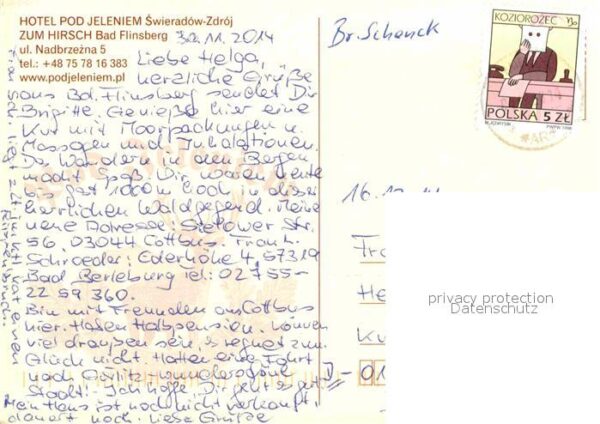 HOTEL POD JELENIEM Świeradów-Zdrój
ZUM HIRSCH Bad Flinsberg
ul. Nadbrzeżna 5
tel.: +48 75 78 16 383
www.podjeleniem.pl
30.11.2014
Liebe Helga,
herzliche Grüße
aus Bd. Flinsberg sendet Dir
Brigitte. Genieße hier eine
Kur mit Moorpackungen u.
Massagen und Inhalationen.
Das Wandern in den Bergen
macht Spaß. Dir waren heute
bis fast 1000 m hoch in dieser
herrlichen Waldgegend. Meine
neue Adresse: Sielower Str.
56, 03044 Cottbus.
Schroeder: Ederhöhe 4, 57319
Bad Berleburg Tel: 02755-
22 59 360.
Bin mit Freunden aus Cottbus
hier. Haben Halbpension, können
viel draußen sein, es regnet zum
Glück nicht. Hatten eine Fahrt
nach Görlitz - wunderschöne
Stadt! Ich hoffe, Dir geht es gut.
Mein Haus ist noch nicht verkauft,
dauert noch. Liebe Grüße
Br. Schenck
KOZIOROŻEC
POLSKA 5 ZŁ
16.12.14
Fra
He
Ku
D-01
privacy protection
Datenschutz